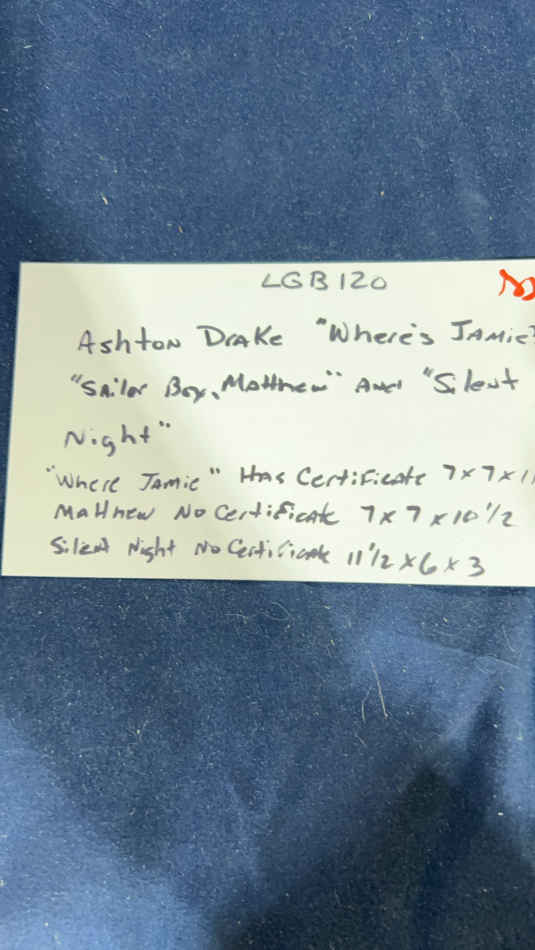 LGB120
Ashton Drake "Where's Jamie?
"Sailor Boy, Matthew" And "Silent
Night"
"Where Jamie" Has Certificate 7x7x11
Matthew No Certificate 7x7x10 1/2
Silent Night No Certificate 11 1/2 x 6 x 3